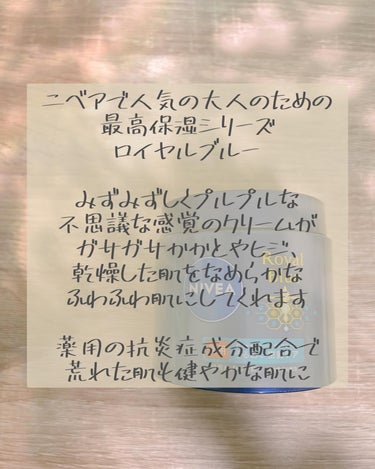 ニベアで人気の大人のための
最高保湿シリーズ
ロイヤルブルー
みずみずしくプルプルな
不思議な感覚のクリームが
ガサガサかかとやヒジ、
乾燥した肌をなめらかな
ふわふわ肌にしてくれます
薬用の抗炎症成分配合で
荒れた肌も健やかな肌に
Royal
Blue
NIVEA